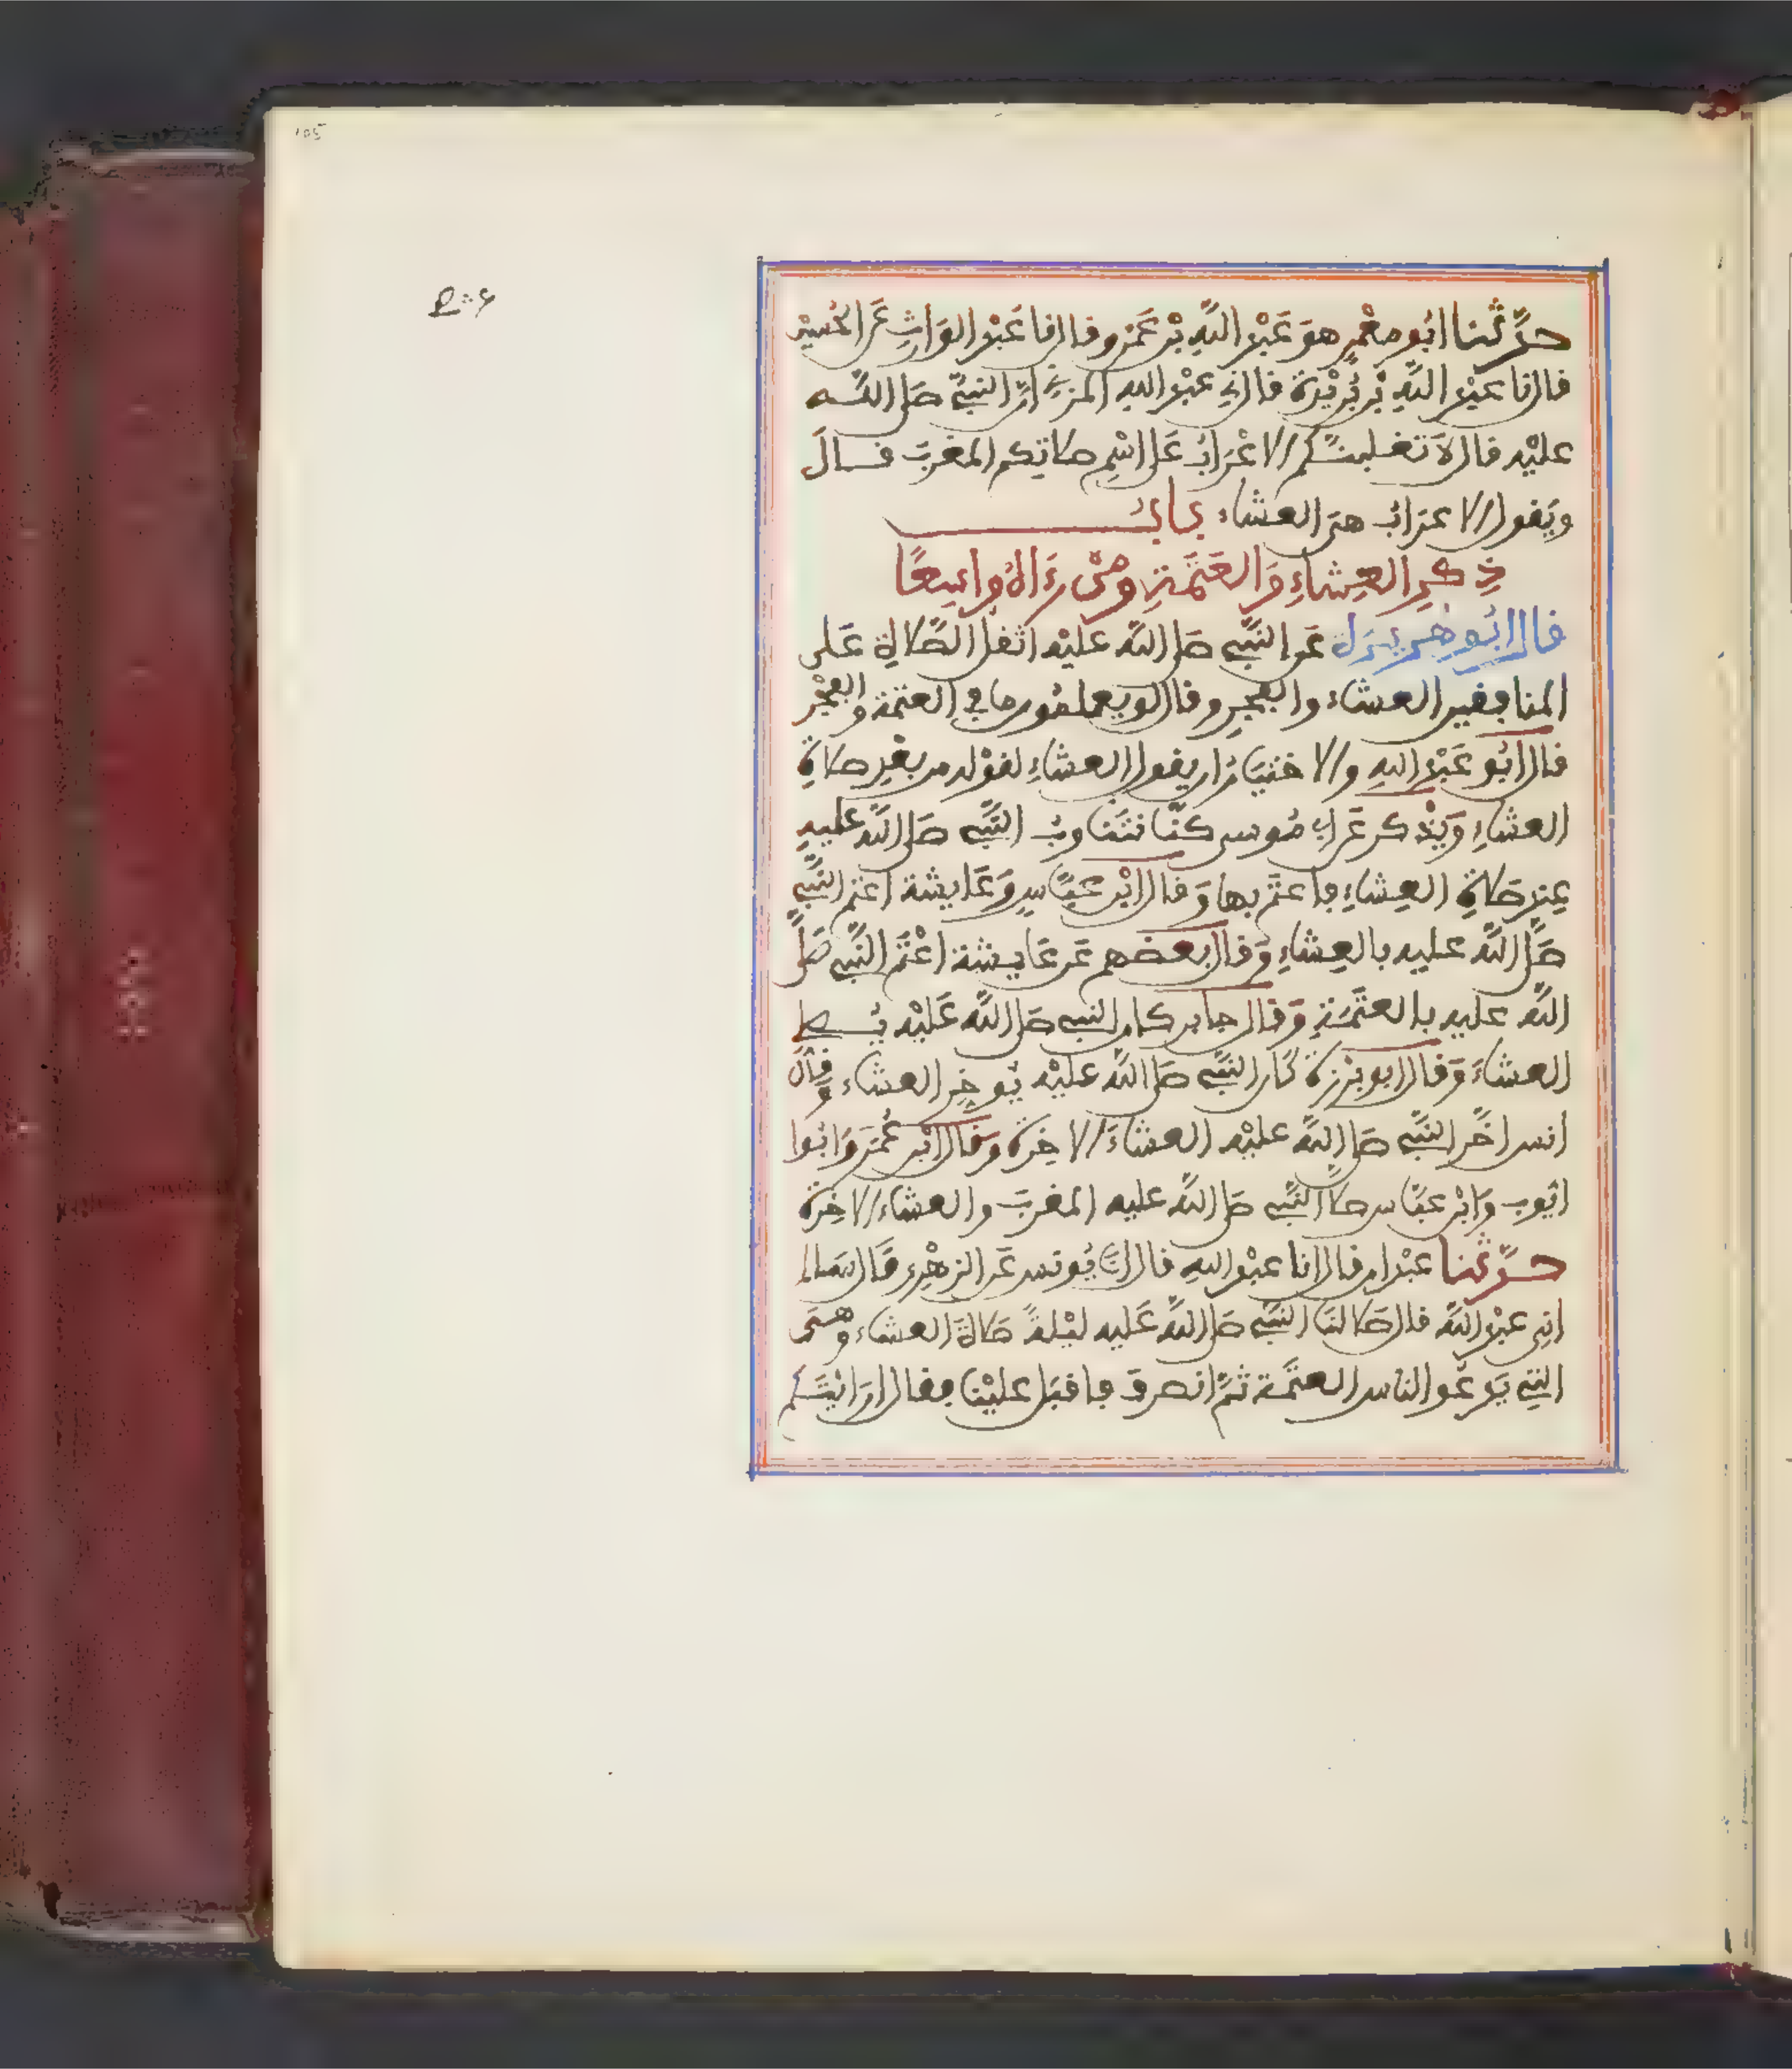 حدَّثنا ابو معْمرٍ هوَ عَبْد اللَّهِ بْن عَمْرو قال نا عَبْد الوَارِث عَن الحُسيْن
قال نا عبْد اللَّهِ بْن بُرَيْدة قال نِي عبْد الله المزني انّ النبيَّ صَلى اللــه
عليْه قال لَا تغلبنّكم الاعْرَابُ عَلى اسْمِ صلاتِكم المغربَ قــال
ويَقول الاعرابُ هيَ العشاء بــابُــ
ذِكرِ العِشاءِ وَالعَتَمَةِ ومَنْ رَءَاهُ وَاسِعًا
قال ابُو هريرَة عَن النَّبي صَلى اللَّه عَليْه اثقل الصَّلاةِ عَلى
المنافقين العشاء والفجر وقال لو يعلمُون ما في العتمة والفجْر
قال ابُو عَبْد اللهِ والاختيَارُ ان يقول العشاءِ لقوْله من بعْدِ صلاةِ
العشاءِ وَيُذكر عَن ابي مُوسى كنَّا نتنَاوبُ النَّبي صَلى اللَّه عليهِ
عِند صَلاةِ العِشاءِ فاعتَم بها وَقال ابْن عبَّاسٍ وَعَايشة اعتم النَّبي
صَلَّى اللَّه عليه بالعِشاءِ وَقال بعضهم عَن عَايشة اعْتَم النَّبي صَلَّى
اللَّه عليه بالعتَمَةِ وَقال جابر كان النبي صَلى اللَّه عَليْه يُصلي
العشاءَ وَقال ابو برْزة كَان النَّبي صَلى اللَّه عليْه يُوخِر العشاء وَقال
انس اخَّر النَّبي صَلى اللَّه عليْه العشاءَ الاخِرة وَقال ابْن عُمَرَ وَابُوا
ايّوب وَابْن عبَّاس صلى النَّبي صَلى اللَّه عليه المغربَ والعشاء الاخِرة
حــدَّثنا عبْدان قال انا عبْد اللهِ قال انا يُونس عَن الزهْرِي قَال سَالم
اني عبْد اللَّه قال صَلى لنَا النَّبي صَلى اللَّه عَليه ليْلةً صَلاةَ العشاء وهيَ
التي يَدعُو الناس العتَمة ثمَّ انصرفَ فاقبَل عليْنا فقال ارَايْتَــم